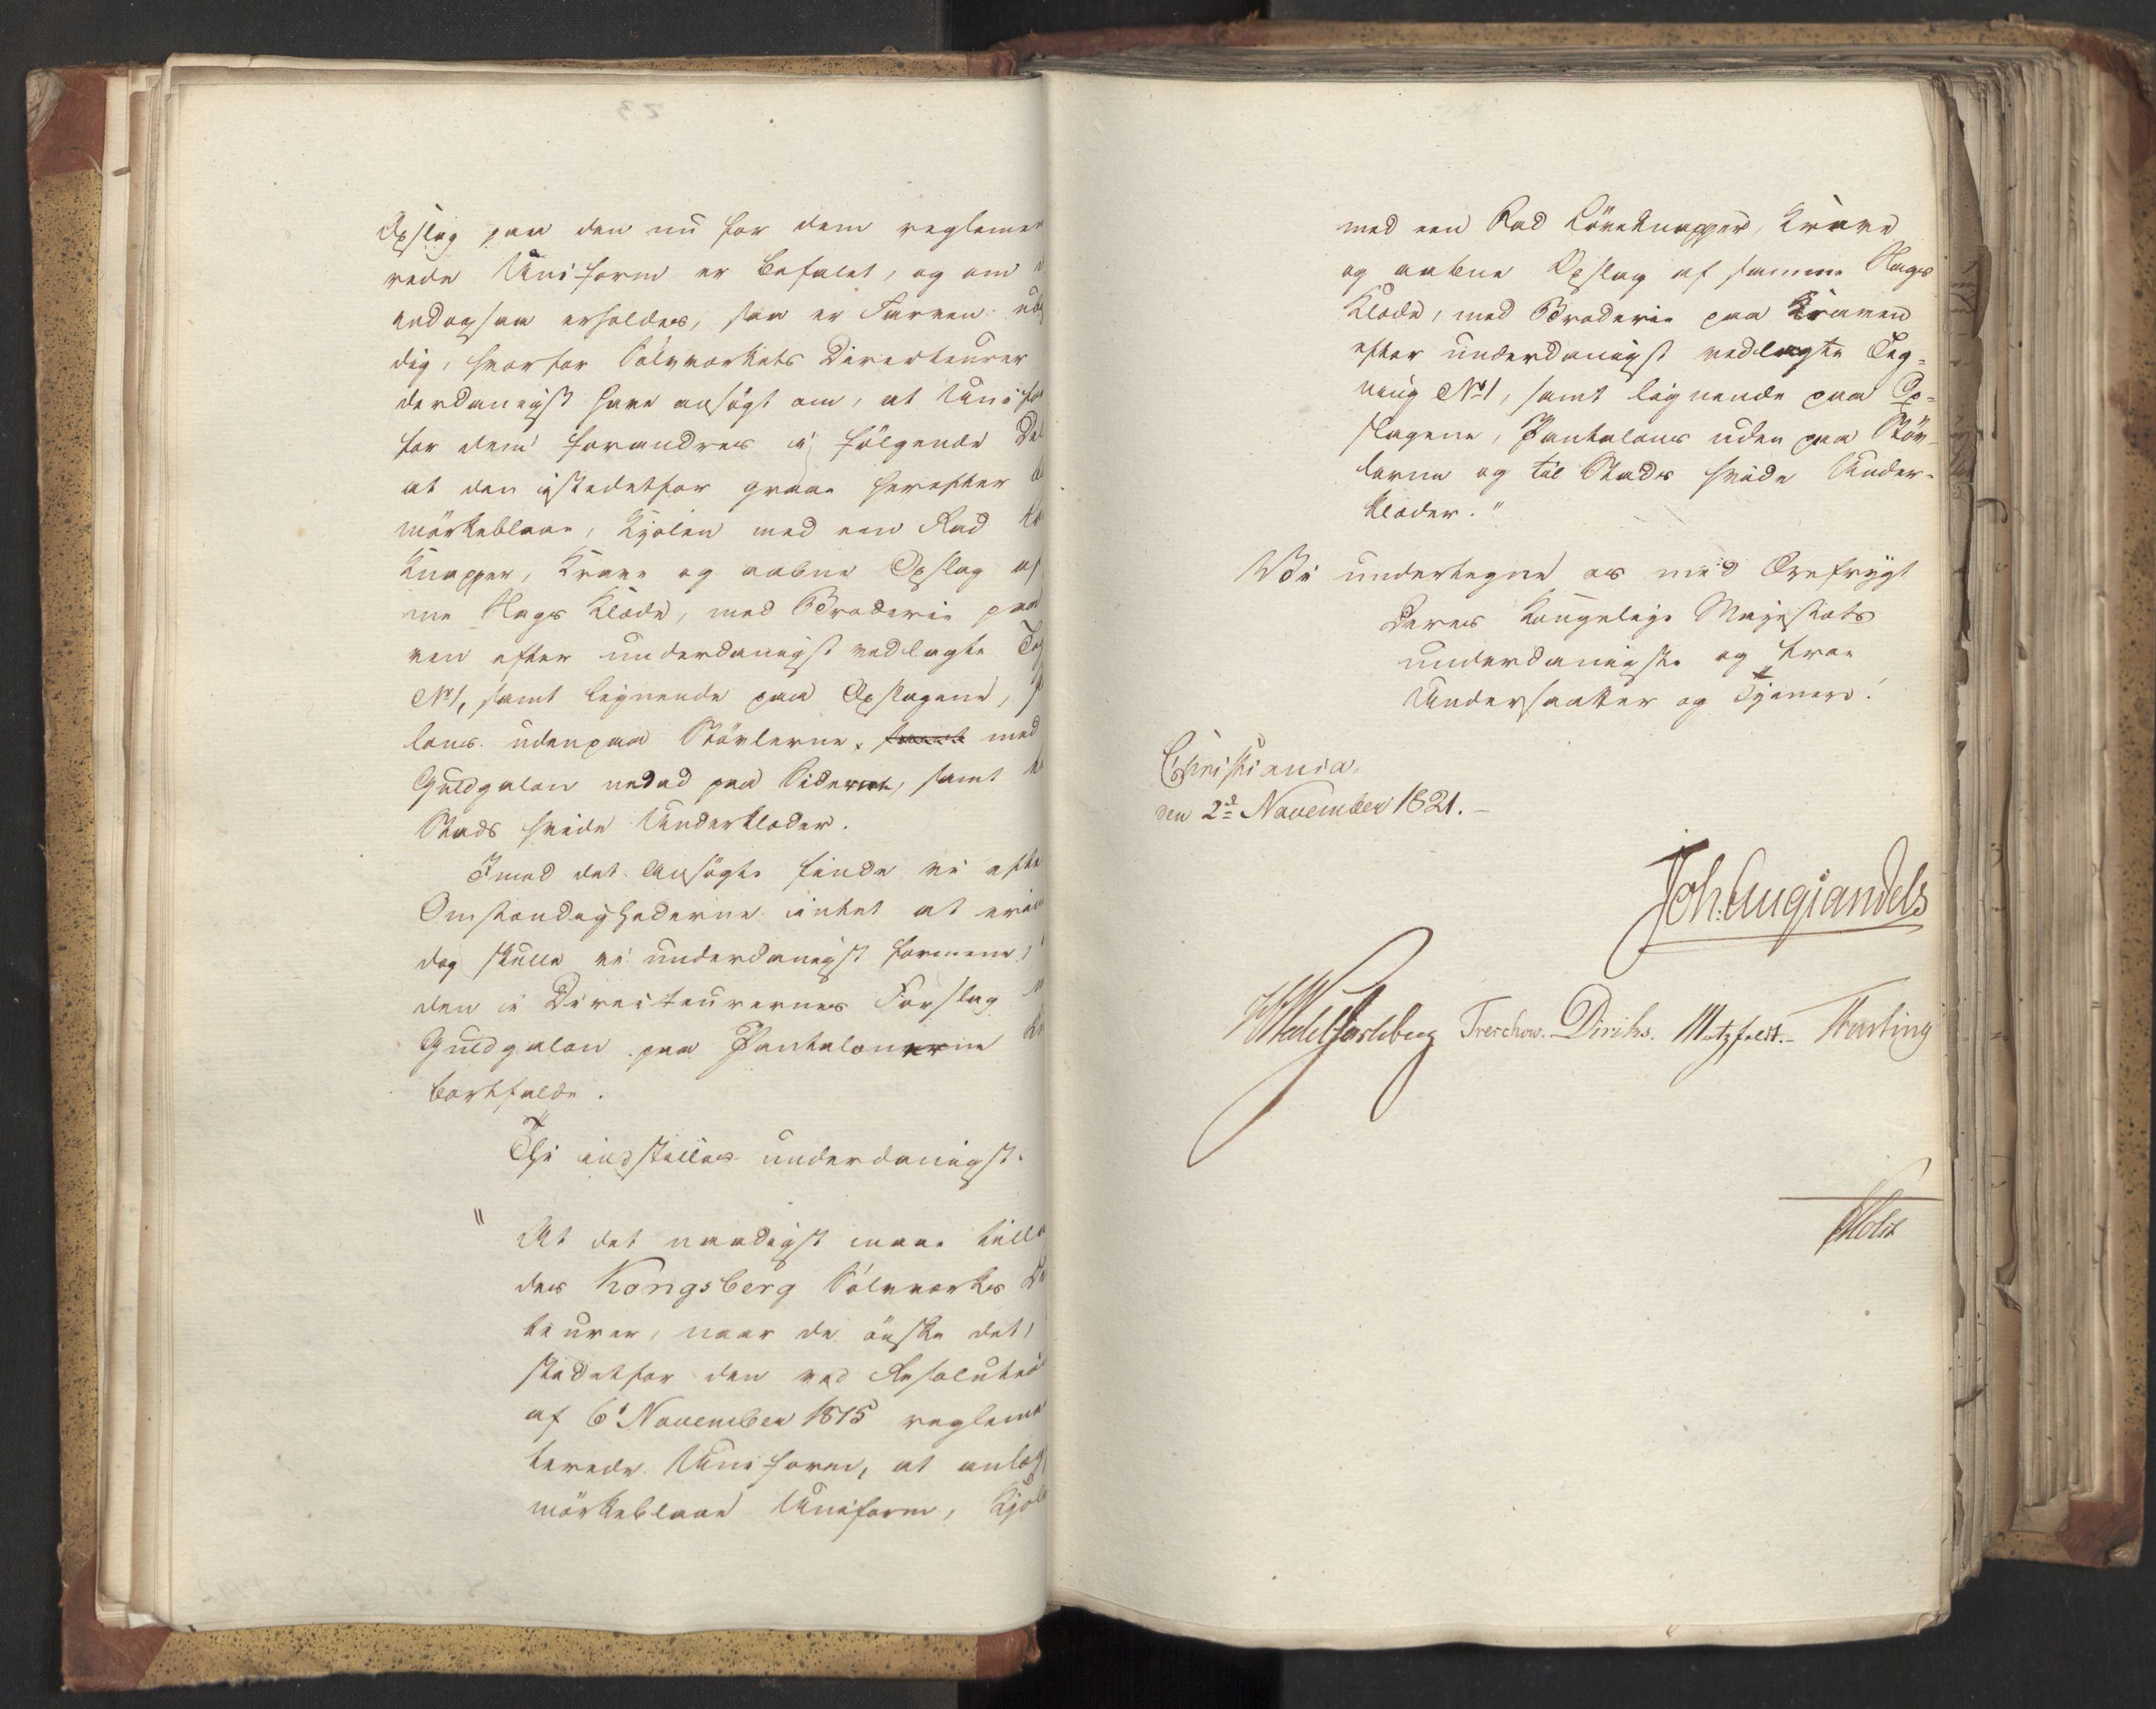 Opslag paa den nu for dem reglemen
rede Uniform er befalet, og om
endogsaa erholdes, saa er Farven ubs
dig, hvorfor Sölvværkets Directeurer
derdanigst have ansögt om, at Unifo
for dem forandres i fölgende
at den istedetfor graae herefter
mörkeblaae, Kjolen med een Rad
Knapper, Krave og aabne Opslag af
me Slags Klæde, med Broderie paa
ven efter underdanigst vedlagte Teg
No 1, samt lignende paa Opslagene,
lons udenpaa Stövlerne, samt med
Guldgalon nedad paa Siderne, samt
Stads hvide Underklæder.
Imod det Ansögte finde vi efte
Omstændighederne intet at erin
dog skulle vi underdanigst formene,
den i Directeurernes Forslag
Guldgalon paa Pantalonerne
bortfalde.
Thi indstilles underdanigst:
"At det naadigst maae tilla
des Kongsberg Sölvværkes
teurer, naar de önske det,
stedetfor den ved Resolution
af 6t November 1815 reglemen
terede Uniform, at anlæg
mörkeblaae Uniform, Kjole
med een Rad Löveknapper, Krave
og aabne Opslag af samme Slags
Klæde, med Broderie paa Kraven
efter underdanigst vedlagte Teg-
ning No 1, samt lignende paa Op-
slagene, Pantalons uden paa Stöv-
lerne og til Stads hvide Under-
klæder."
Vi undertegne os med Ærefrygt
Deres Kongelige Majestæts
underdanigste og troe
Undersaatter og Tjenere!
Christiania,
den 2d November 1821.-
Joh. Aug. Sandels
HWedelJarlsberg Treschow. Diriks. Motzfeldt.- Fasting
Holst